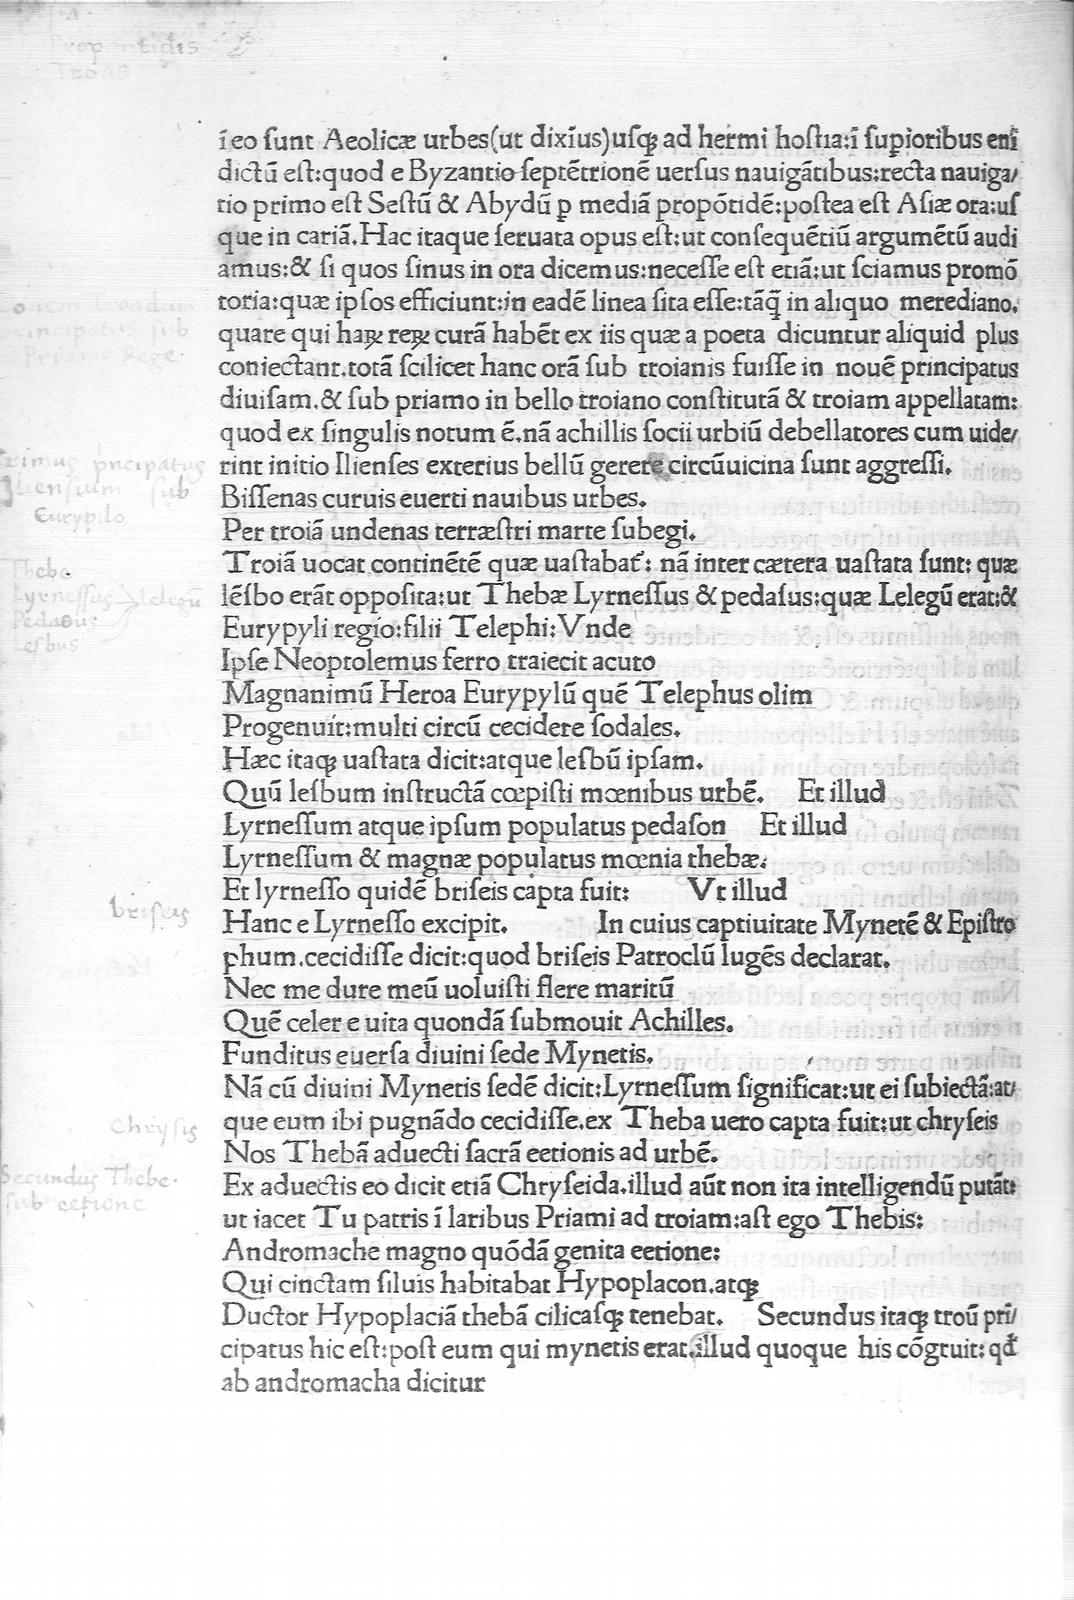 Propontidis
Troas
ī eo ſunt Aeolicæ urbes(ut dixīus)uſqȝ ad hermi hoſtia:ī ſupioribus enī
dictū eſt:quod e Byzantio ſeptētrionē uerſus nauigātibus:recta nauiga/
tio primo eſt Seſtū & Abydū ꝑ mediā propōtidē:poſtea eſt Aſiæ ora:uſ
que in cariā.Hac itaque ſeruata opus eſt:ut conſequētiū argumētū audi
amus:& ſi quos ſinus in ora dicemus:neceſſe eſt etiā:ut ſciamus promō
toria:quæ ipſos efficiunt:in eadē linea ſita eſſe:tāq̄ in aliquo merediano.
quare qui haꝝ reꝝ curā habēt ex iis quæ a poeta dicuntur aliquid plus
coniectant.totā ſcilicet hanc orā ſub troianis fuiſſe in nouē principatus
diuiſam.& ſub priamo in bello troiano conſtitutā & troiam appellatam:
quod ex ſingulis notum ē.nā achillis ſocii urbiū debellatores cum uide/
rint initio Ilienſes exterius bellū gerere circūuicina ſunt aggreſſi.
Biſſenas curuis euerti nauibus urbes.
Per troiā undenas terræſtri marte ſubegi.
Troiā uocat continētē quæ uaſtabat᷑: nā inter cætera uaſtata ſunt: quæ
lēſbo erāt oppoſita:ut Thebæ Lyrneſſus & pedaſus:quæ Lelegū erat:&
Eurypyli regio:filii Telephi:Vnde
Ipſe Neoptolemus ferro traiecit acuto
Magnanimū Heroa Eurypylū quē Telephus olim
Progenuit:multi circū cecidere ſodales.
Hæc itaqȝ uaſtata dicit:atque leſbū ipſam.
Quū leſbum inſtructā cœpiſti mœnibus urbē. Et illud
Lyrneſſum atque ipſum populatus pedaſon Et illud
Lyrneſſum & magnæ populatus mœnia thebæ.
Et lyrneſſo quidē briſeis capta fuit: Vt illud
Hanc e Lyrneſſo excipit. In cuius captiuitate Mynetē & Epiſtro
phum.cecidiſſe dicit:quod briſeis Patroclū lugēs declarat.
Nec me dure meū uoluiſti flere maritū
Quē celer e uita quondā ſubmouit Achilles.
Funditus euerſa diuini ſede Mynetis.
Nā cū diuini Mynetis ſedē dicit:Lyrneſſum ſignificat:ut ei ſubiectā:at/
que eum ibi pugnādo cecidiſſe.ex Theba uero capta fuit:ut chryſeis
Nos Thebā aduecti ſacrā eetionis ad urbē.
Ex aduectis eo dicit etiā Chryſeida.illud aūt non ita intelligendū putāt:
ut iacet Tu patris ī laribus Priami ad troiam:aſt ego Thebis:
Andromache magno quōdā genita eetione:
Qui cinctam ſiluis habitabat Hypoplacon.atqȝ
Ductor Hypoplaciā thebā cilicaſqȝ tenebat. Secundus itaqȝ troū prī/
cipatus hic eſt:poſt eum qui mynetis erat.illud quoque his cōgruit:qđ
ab andromacha dicitur
troadum
principatus ſub
Priamo Rege.
primus pncipatus
Iliensium ſub
Eurypilo
Thebe.
Lyrneſſus
Pedasus
Lesbus
Lelegū
briſeis
Chrysis
Secundus Thebe.
ſub eetione